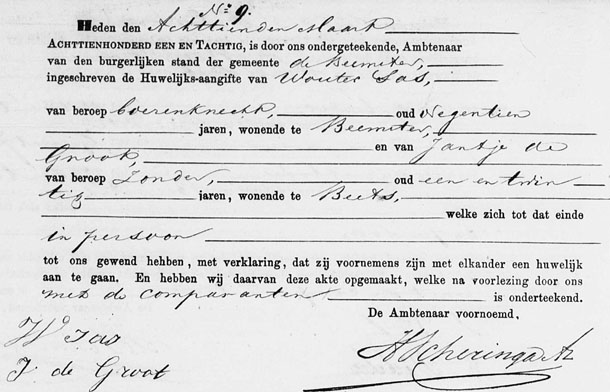 No 9.
Heden den Achttienden Maart
ACHTTIENHONDERD EEN EN TACHTIG, is door ons ondergeteekende, Ambtenaar
van den burgerlijken stand der gemeente de Beemster,
ingeschreven de Huwelijks-aangifte van Wouter Jas,
van beroep boerenknecht, oud Negentien
jaren, wonende te Beemster,
en van Jantje de
Groot,
van beroep Zonder, oud een en twin
tig jaren, wonende te Beets,
welke zich tot dat einde
in persoon
tot ons gewend hebben, met verklaring, dat zij voornemens zijn met elkander een huwelijk
aan te gaan. En hebben wij daarvan deze akte opgemaakt, welke na voorlezing door ons
met de comparanten is onderteekend.
De Ambtenaar voornoemd,
W Jas
J de Groot
HScheringa Az